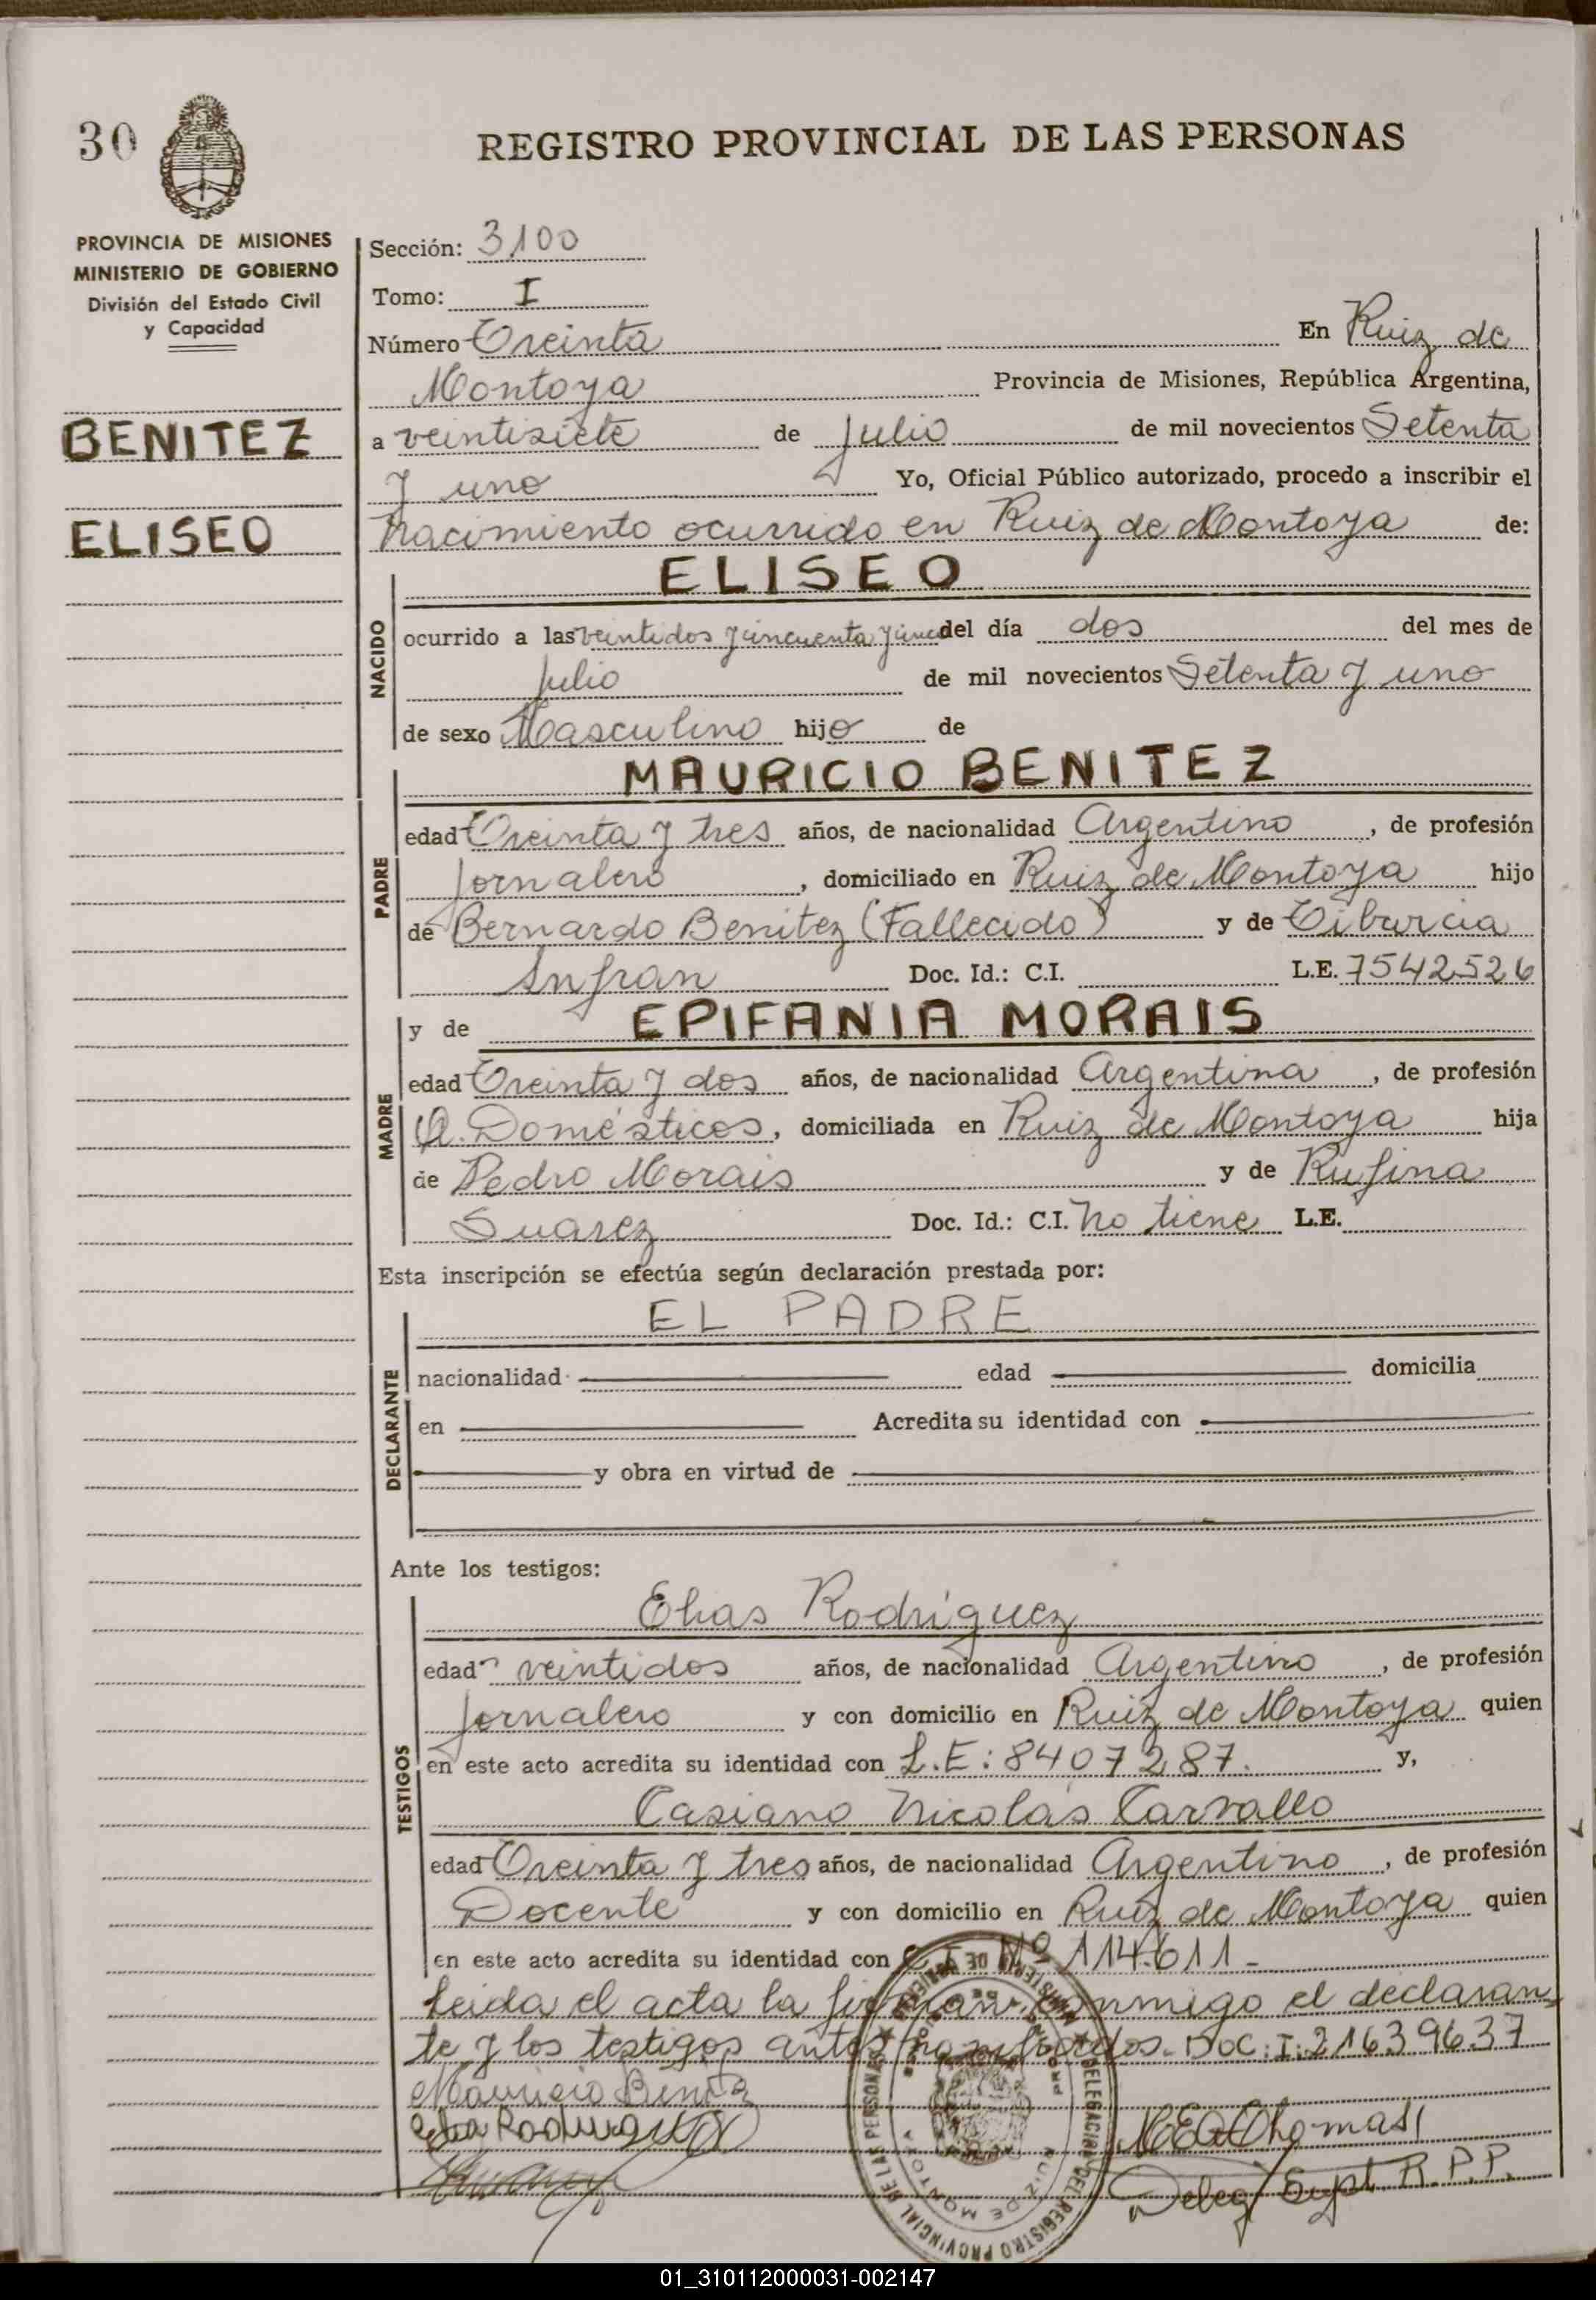 30
REGISTRO PROVINCIAL DE LAS PERSONAS
PROVINCIA DE MISIONES
MINISTERIO DE GOBIERNO
División del Estado Civil
y Capacidad
BENITEZ
ELISEO
Sección: 3100
Tomo: I
Número Treinta En Ruiz de
Montoya Provincia de Misiones, República Argentina,
a veintisiete de Julio de mil novecientos Setenta
y uno Yo, Oficial Público autorizado, procedo a inscribir el
nacimiento ocurrido en Ruiz de Montoya de:
NACIDO
ELISEO
ocurrido a las veintidos y cincuenta y cinco del día dos del mes de
Julio de mil novecientos Setenta y uno
de sexo Masculino hijo de
PADRE
MAURICIO BENITEZ
edad Treinta y tres años, de nacionalidad Argentino, de profesión
Jornalero, domiciliado en Ruiz de Montoya hijo
de Bernardo Benitez (Fallecido) y de Tiburcia
Infran Doc. Id.: C.I. L.E. 7542526
MADRE
y de EPIFANIA MORAIS
edad Treinta y dos años, de nacionalidad Argentina, de profesión
Q. Domésticos, domiciliada en Ruiz de Montoya hija
de Pedro Morais y de Rufina
Suarez Doc. Id.: C.I. No tiene L.E.
Esta inscripción se efectúa según declaración prestada por:
DECLARANTE
EL PADRE
nacionalidad edad domicilia
en Acredita su identidad con
y obra en virtud de
Ante los testigos:
TESTIGOS
Elias Rodriguez
edad veintidos años, de nacionalidad Argentino, de profesión
Jornalero y con domicilio en Ruiz de Montoya quien
en este acto acredita su identidad con L.E: 8407287. y,
Casiano Nicolás Carvallo
edad Treinta y tres años, de nacionalidad Argentino, de profesión
Docente y con domicilio en Ruiz de Montoya quien
en este acto acredita su identidad con Nº 114.611-
Leida el acta la firman conmigo el declaran
te y los testigos antes DOC: I: 21639637
Mauricio Benitez
Elia Rodriguez
Deleg Supl R.P.P.
DELEGACION DEL REGISTRO PROVINCIAL DE LAS PERSONAS
RUIZ DE MONTOYA
01_310112000031-002147